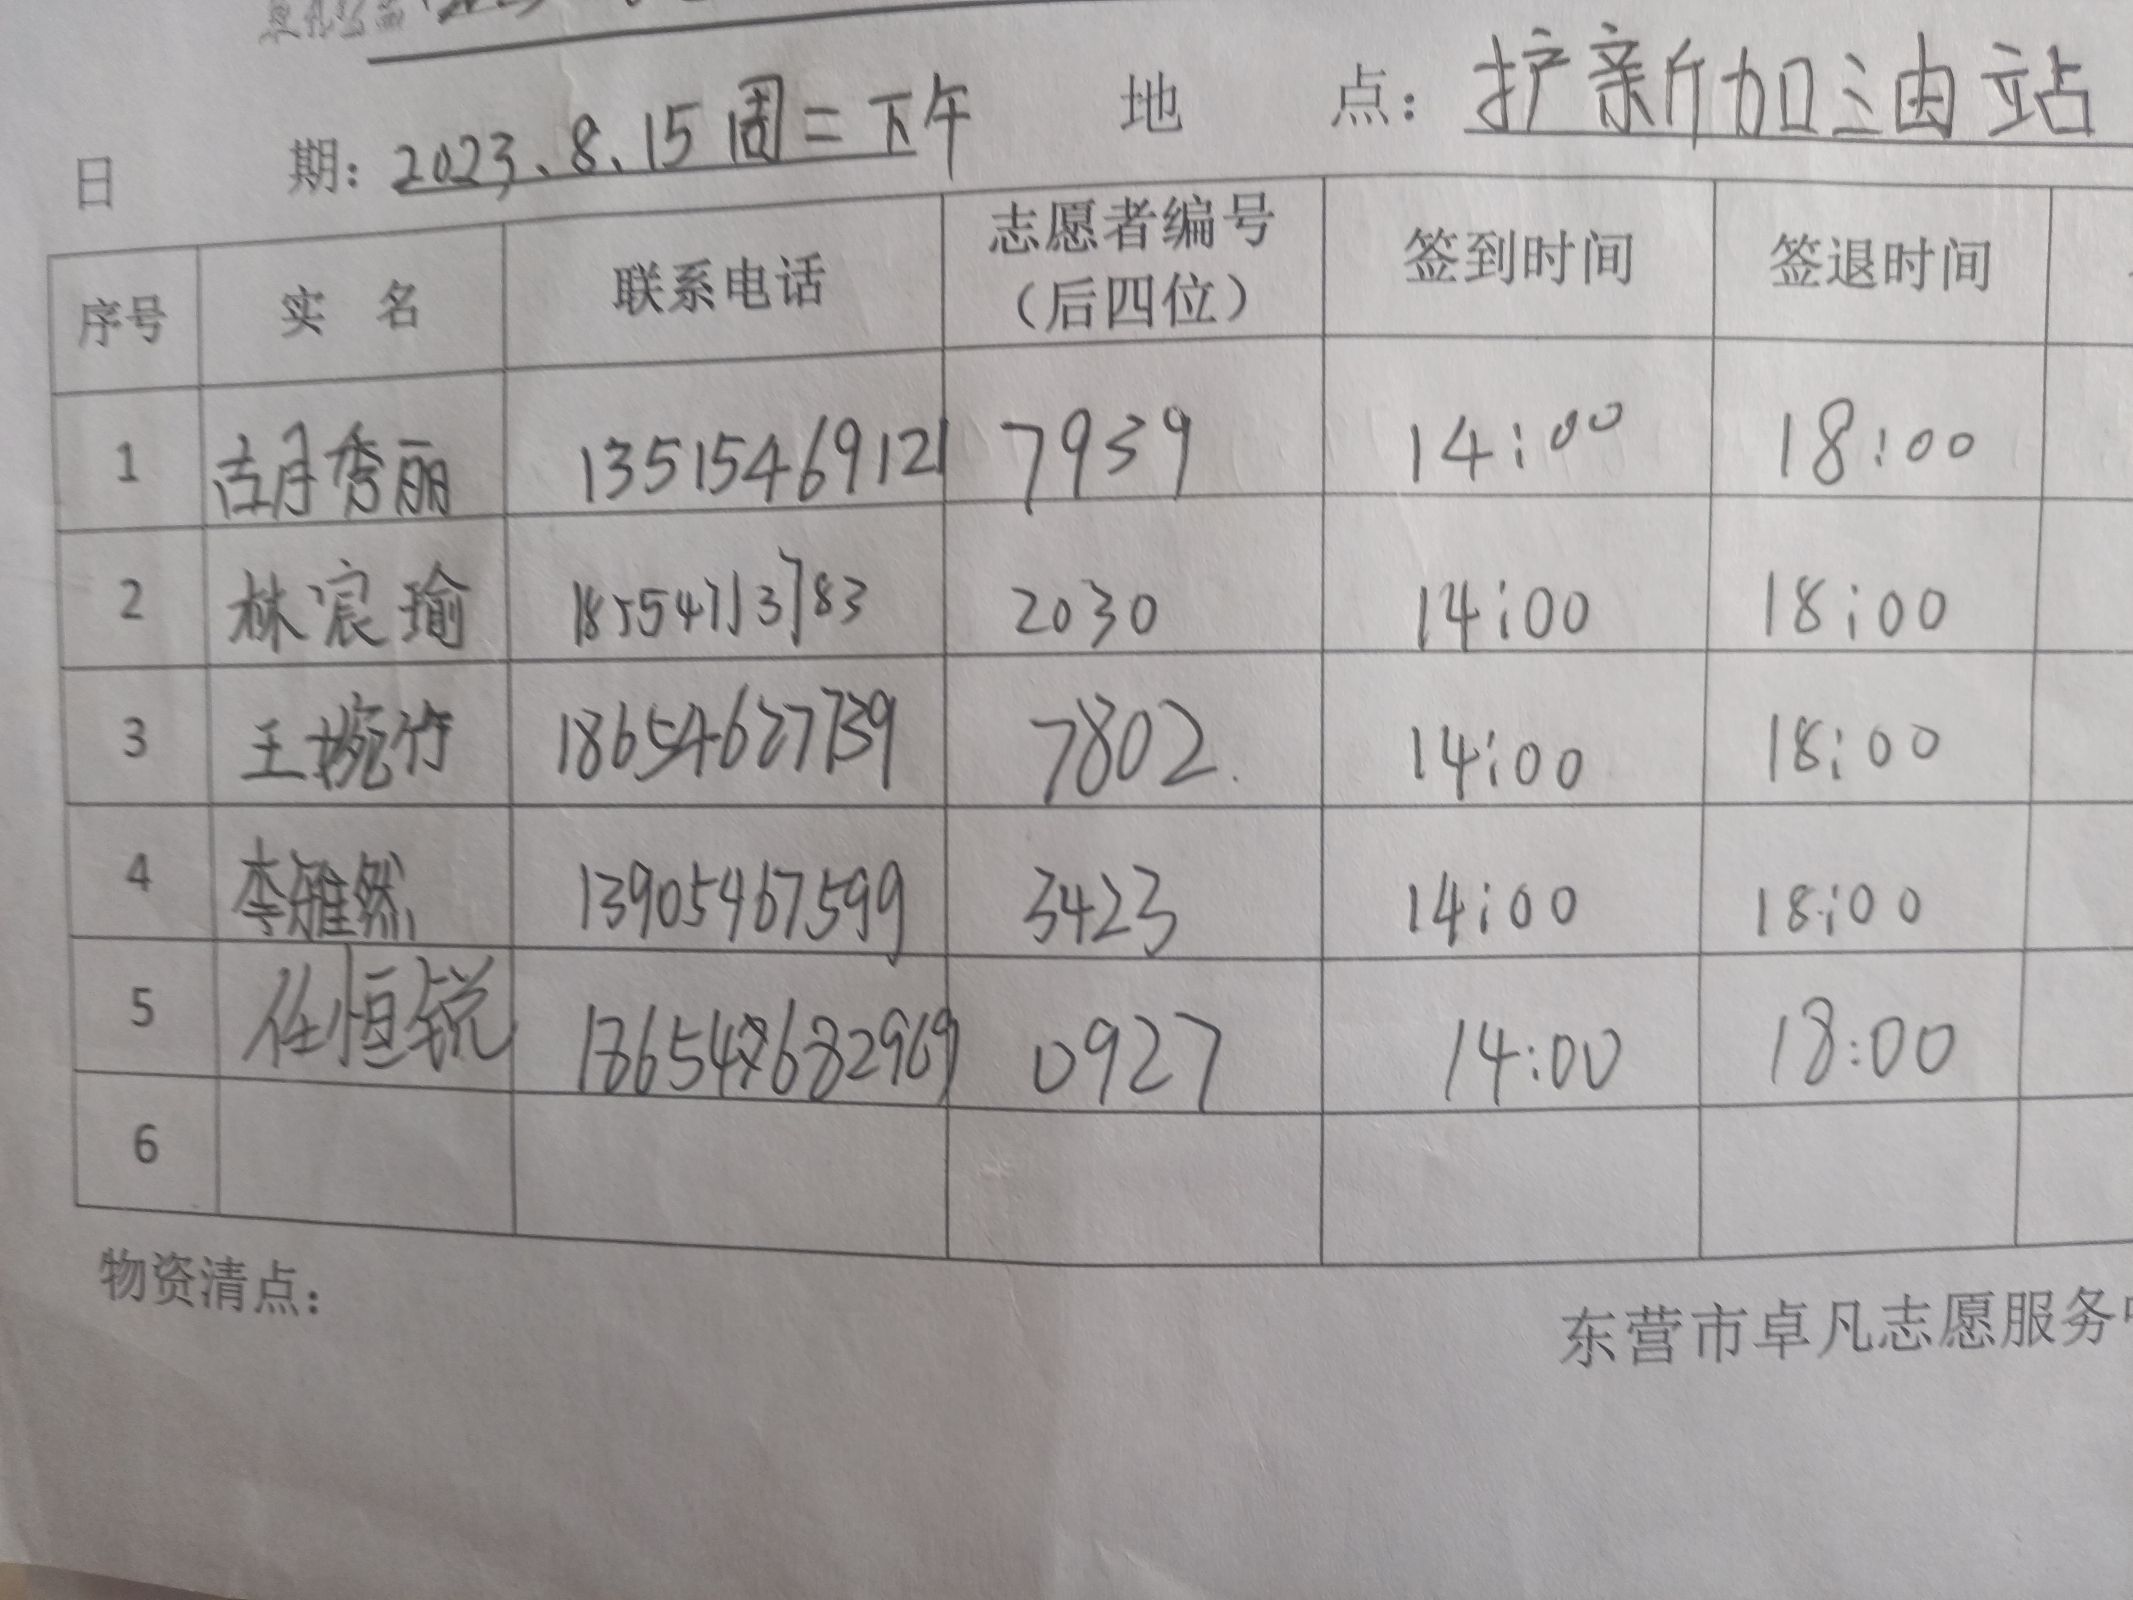 日 期：2023.8.15周二下午 地 点：护新加油站
序号 实 名 联系电话 志愿者编号（后四位） 签到时间 签退时间
1 吉月秀丽 13515469121 7939 14:00 18:00
2 林宸瑜 18554713783 2030 14:00 18:00
3 王婉竹 18654627739 7802. 14:00 18:00
4 李雅然 13905467599 3423 14:00 18:00
5 任恒锐 0927 14:00 18:00
6
物资清点：
东营市卓凡志愿服务